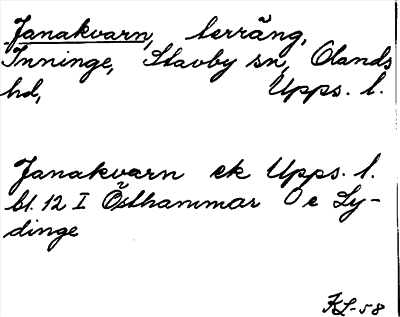 Janakvarn, terräng,
Inninge, Stavby sn, Olands
hd, Upps. l.
Janakvarn ek Upps. l.
bl. 12 I Östhammar O e Ly-
dinge
KL-58